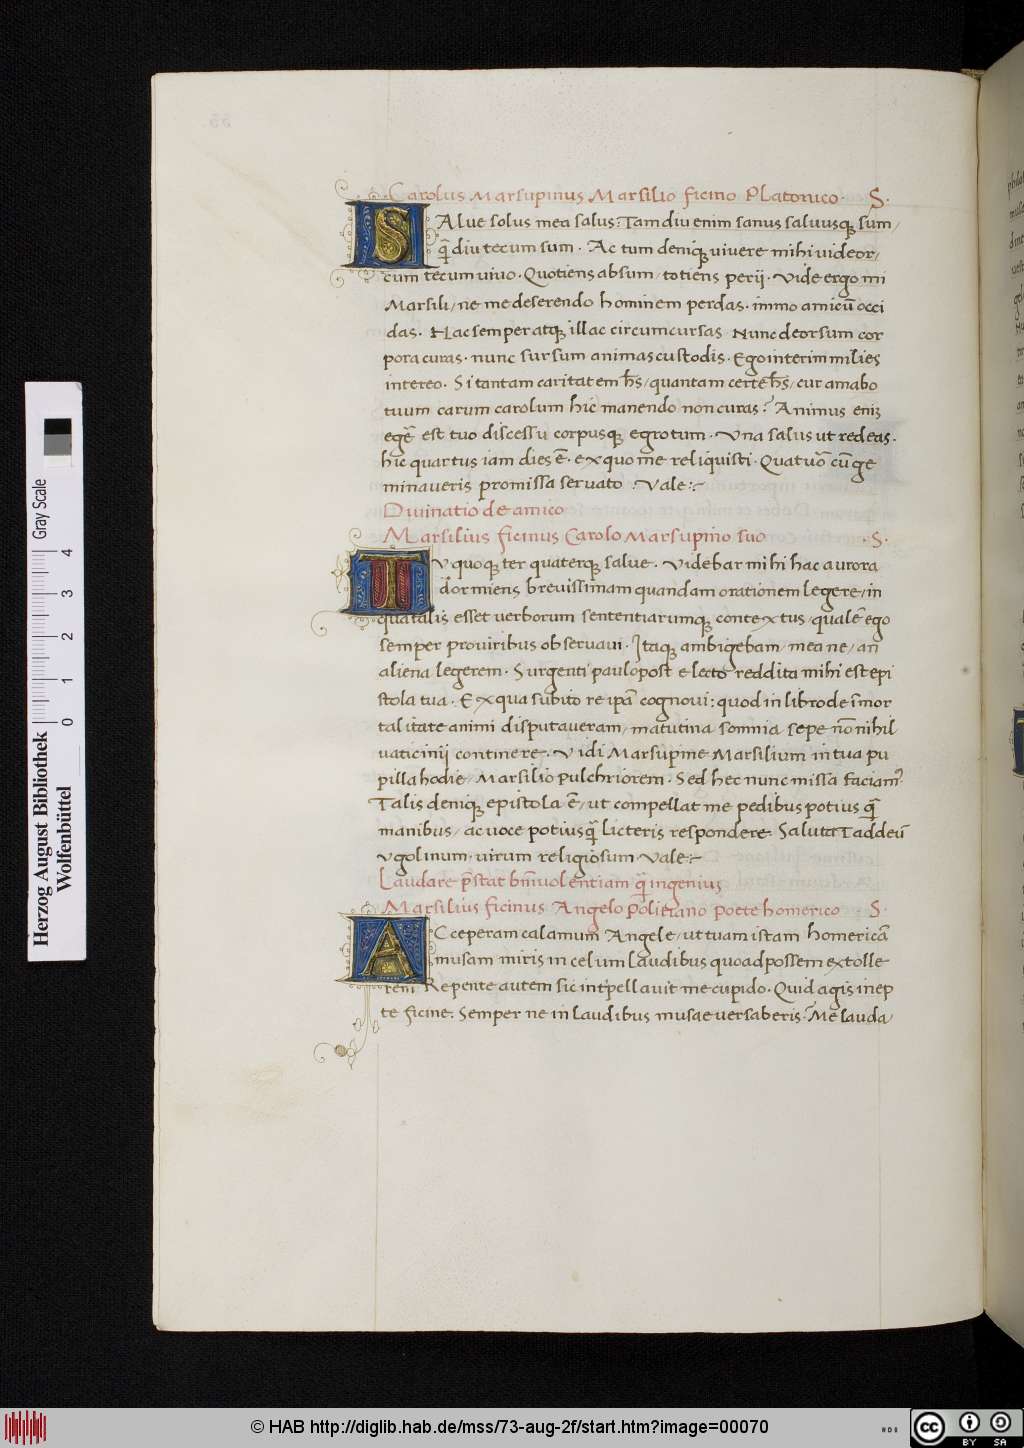 Carolus Marsupinus Marsilio ficino Platonico· S·
SAlue solus mea salus: Tam diu enim sanus saluusq; sum/
q̄ diu tecum sum · Ac tum deniq; uiuere mihi uideor/
cum tecum uiuo · Quotiens absum / totiens perij · Vide ergo mi
Marsili / ne me deserendo hominem perdas · immo amicū occi
das · Hac semper atq; illac circumcursas Nunc deorsum cor
pora curas · nunc sursum animas custodis · Ego interim milies
intereo · Si tantam caritatem hēs / quantam certe hēs / cur amabo
tuum carum carolum hic manendo non curas? Animus eniꝫ
egē est tuo discessu corpusq; egrotum · Vna salus ut redeas ·
hic quartus iam dies ē · ex quo me reliquisti · Quatuō cū ge
minaueris promissa seruato : Vale :~
Diuinatio de amico
Marsilius ficinus Carolo Marsupino suo · S ·
TV quoq; ter quaterq; salue · Videbar mihi hac aurora
dormiens breuissimam quandam orationem legere / in
qua talis esset uerborum sententiarumq; contextus / qualē ego
semper pro uiribus obseruaui · Itaq; ambigebam / mea ne / an
aliena legerem · Surgenti paulo post e lecto reddita mihi est epi
stola tua · Ex qua subito re ip̄a cognoui: quod in libro de īmor
talitate animi disputaueram / matutina somnia sepe nōnihil
uaticinii continere · Vidi Marsupine Marsilium in tua pu
pilla hodie / Marsilio pulchriorem · Sed hec nunc missa faciam⁹·
Talis deniq; epistola ē / ut compellat me pedibus potius q̄
manibus / ac uoce potius q̄ licteris respondere Saluta Taddeū
Vgolinum · uirum religiosum · Vale :~
Laudare p̄stat bn̄iuolentiam q̄ ingenius
Marsilius ficinus Angelo Politiano poete homerico · S·
ACceperam calamum Angele / ut tuam istam homericā
musam miris in celum laudibus quoad possem extolle
rem Repente autem sic int̄pellauit me cupido · Quid agis inep
te ficine: Semper ne in laudibus musae uersaberis? Me lauda/
Herzog August Bibliothek
Wolfenbüttel
0 1 2 3 4 Gray Scale
© HAB http://diglib.hab.de/mss/73-aug-2f/start.htm?image=00070
cc BY SA